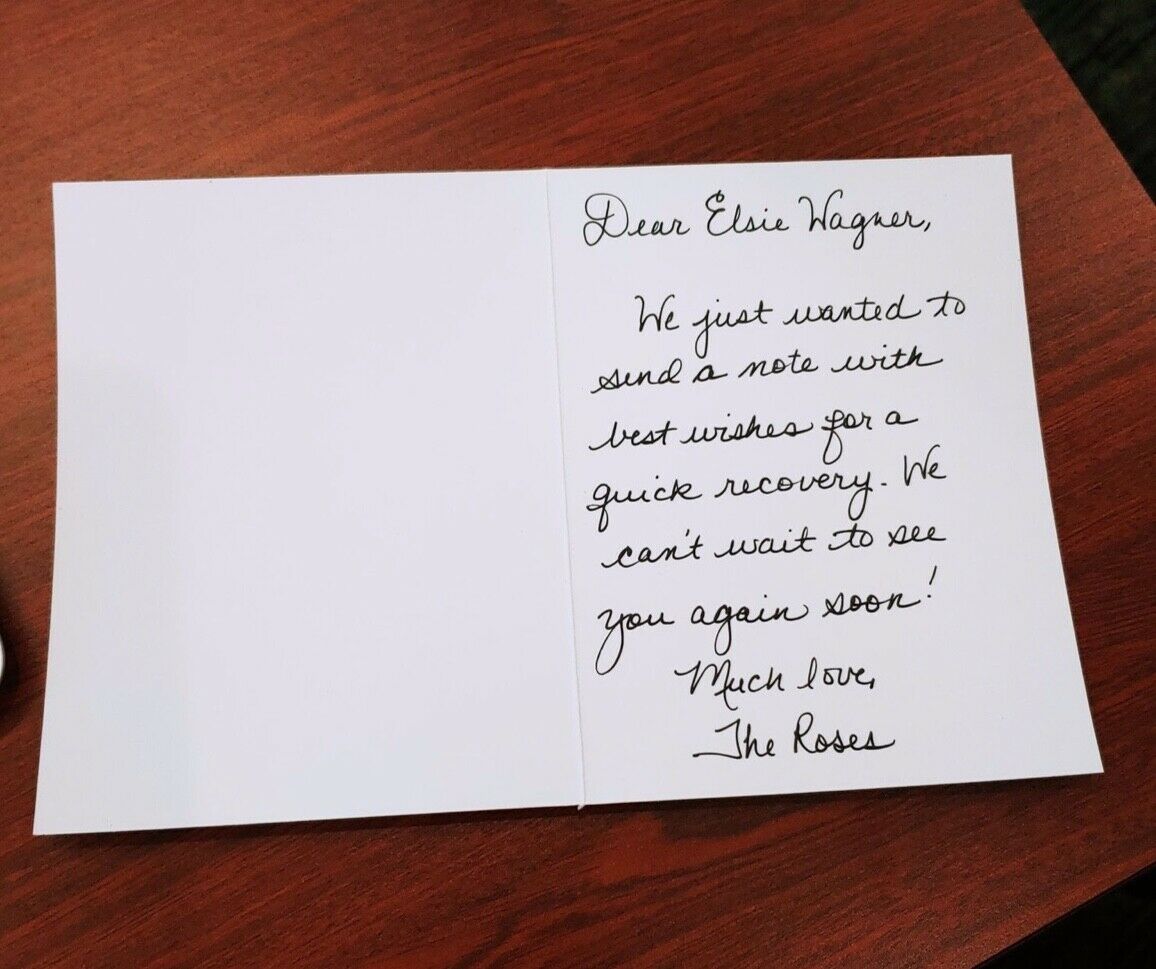 Dear Elsie Wagner,
We just wanted to
send a note with
best wishes for a
quick recovery. We
can't wait to see
you again soon!
Much love,
The Roses